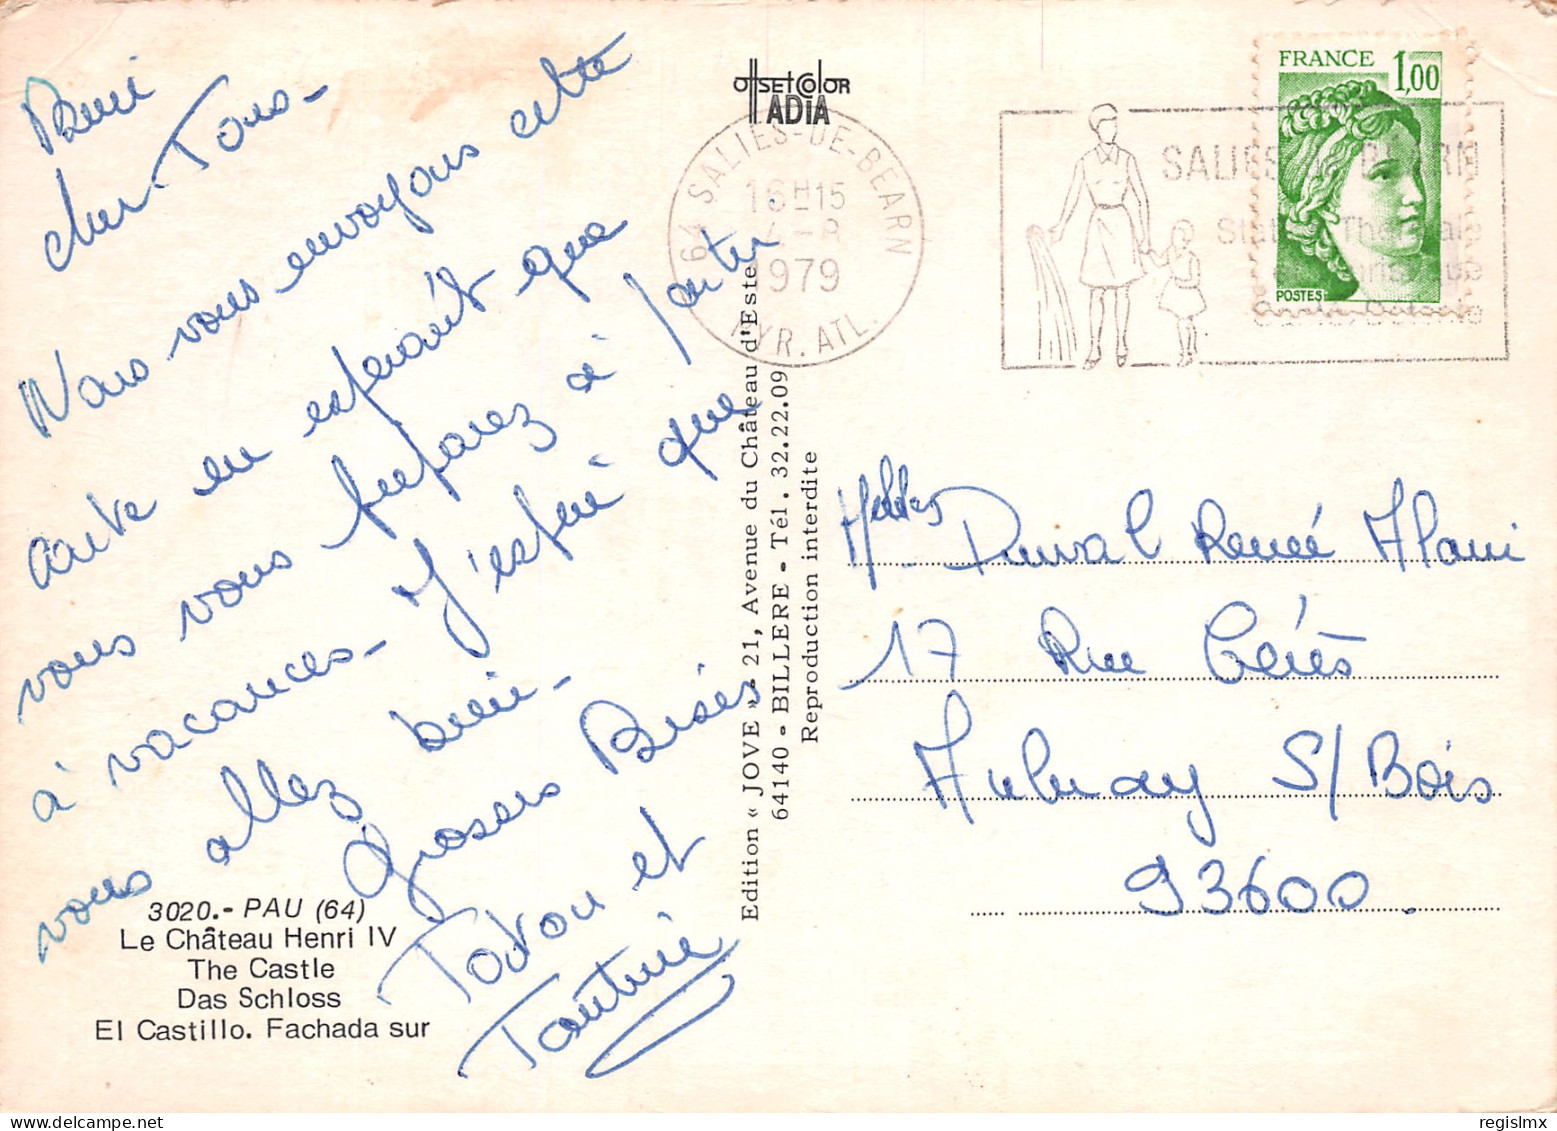 cher Tous-
Nous vous envoyons cette
carte en espérant que
vous vous preparez à partir
à vacances- J'espère que
vous allez bien-
Grosses Bises
Tonton et
Tantine
3020.- PAU (64)
Le Château Henri IV
The Castle
Das Schloss
El Castillo. Fachada sur
OffsetColor
ADIA
Edition « JOVE » - 21, Avenue du Château d'Este
64140 - BILLERE - Tél. 32.22.09
Reproduction interdite
64 SALIES-DE-BEARN
16H15
1979
PYR. ATL.
SALIES DE BEARN
FRANCE 1,00
POSTES
Duval Renée
17 Rue Cérès
Aulnay S/Bois
93600.
regislmx